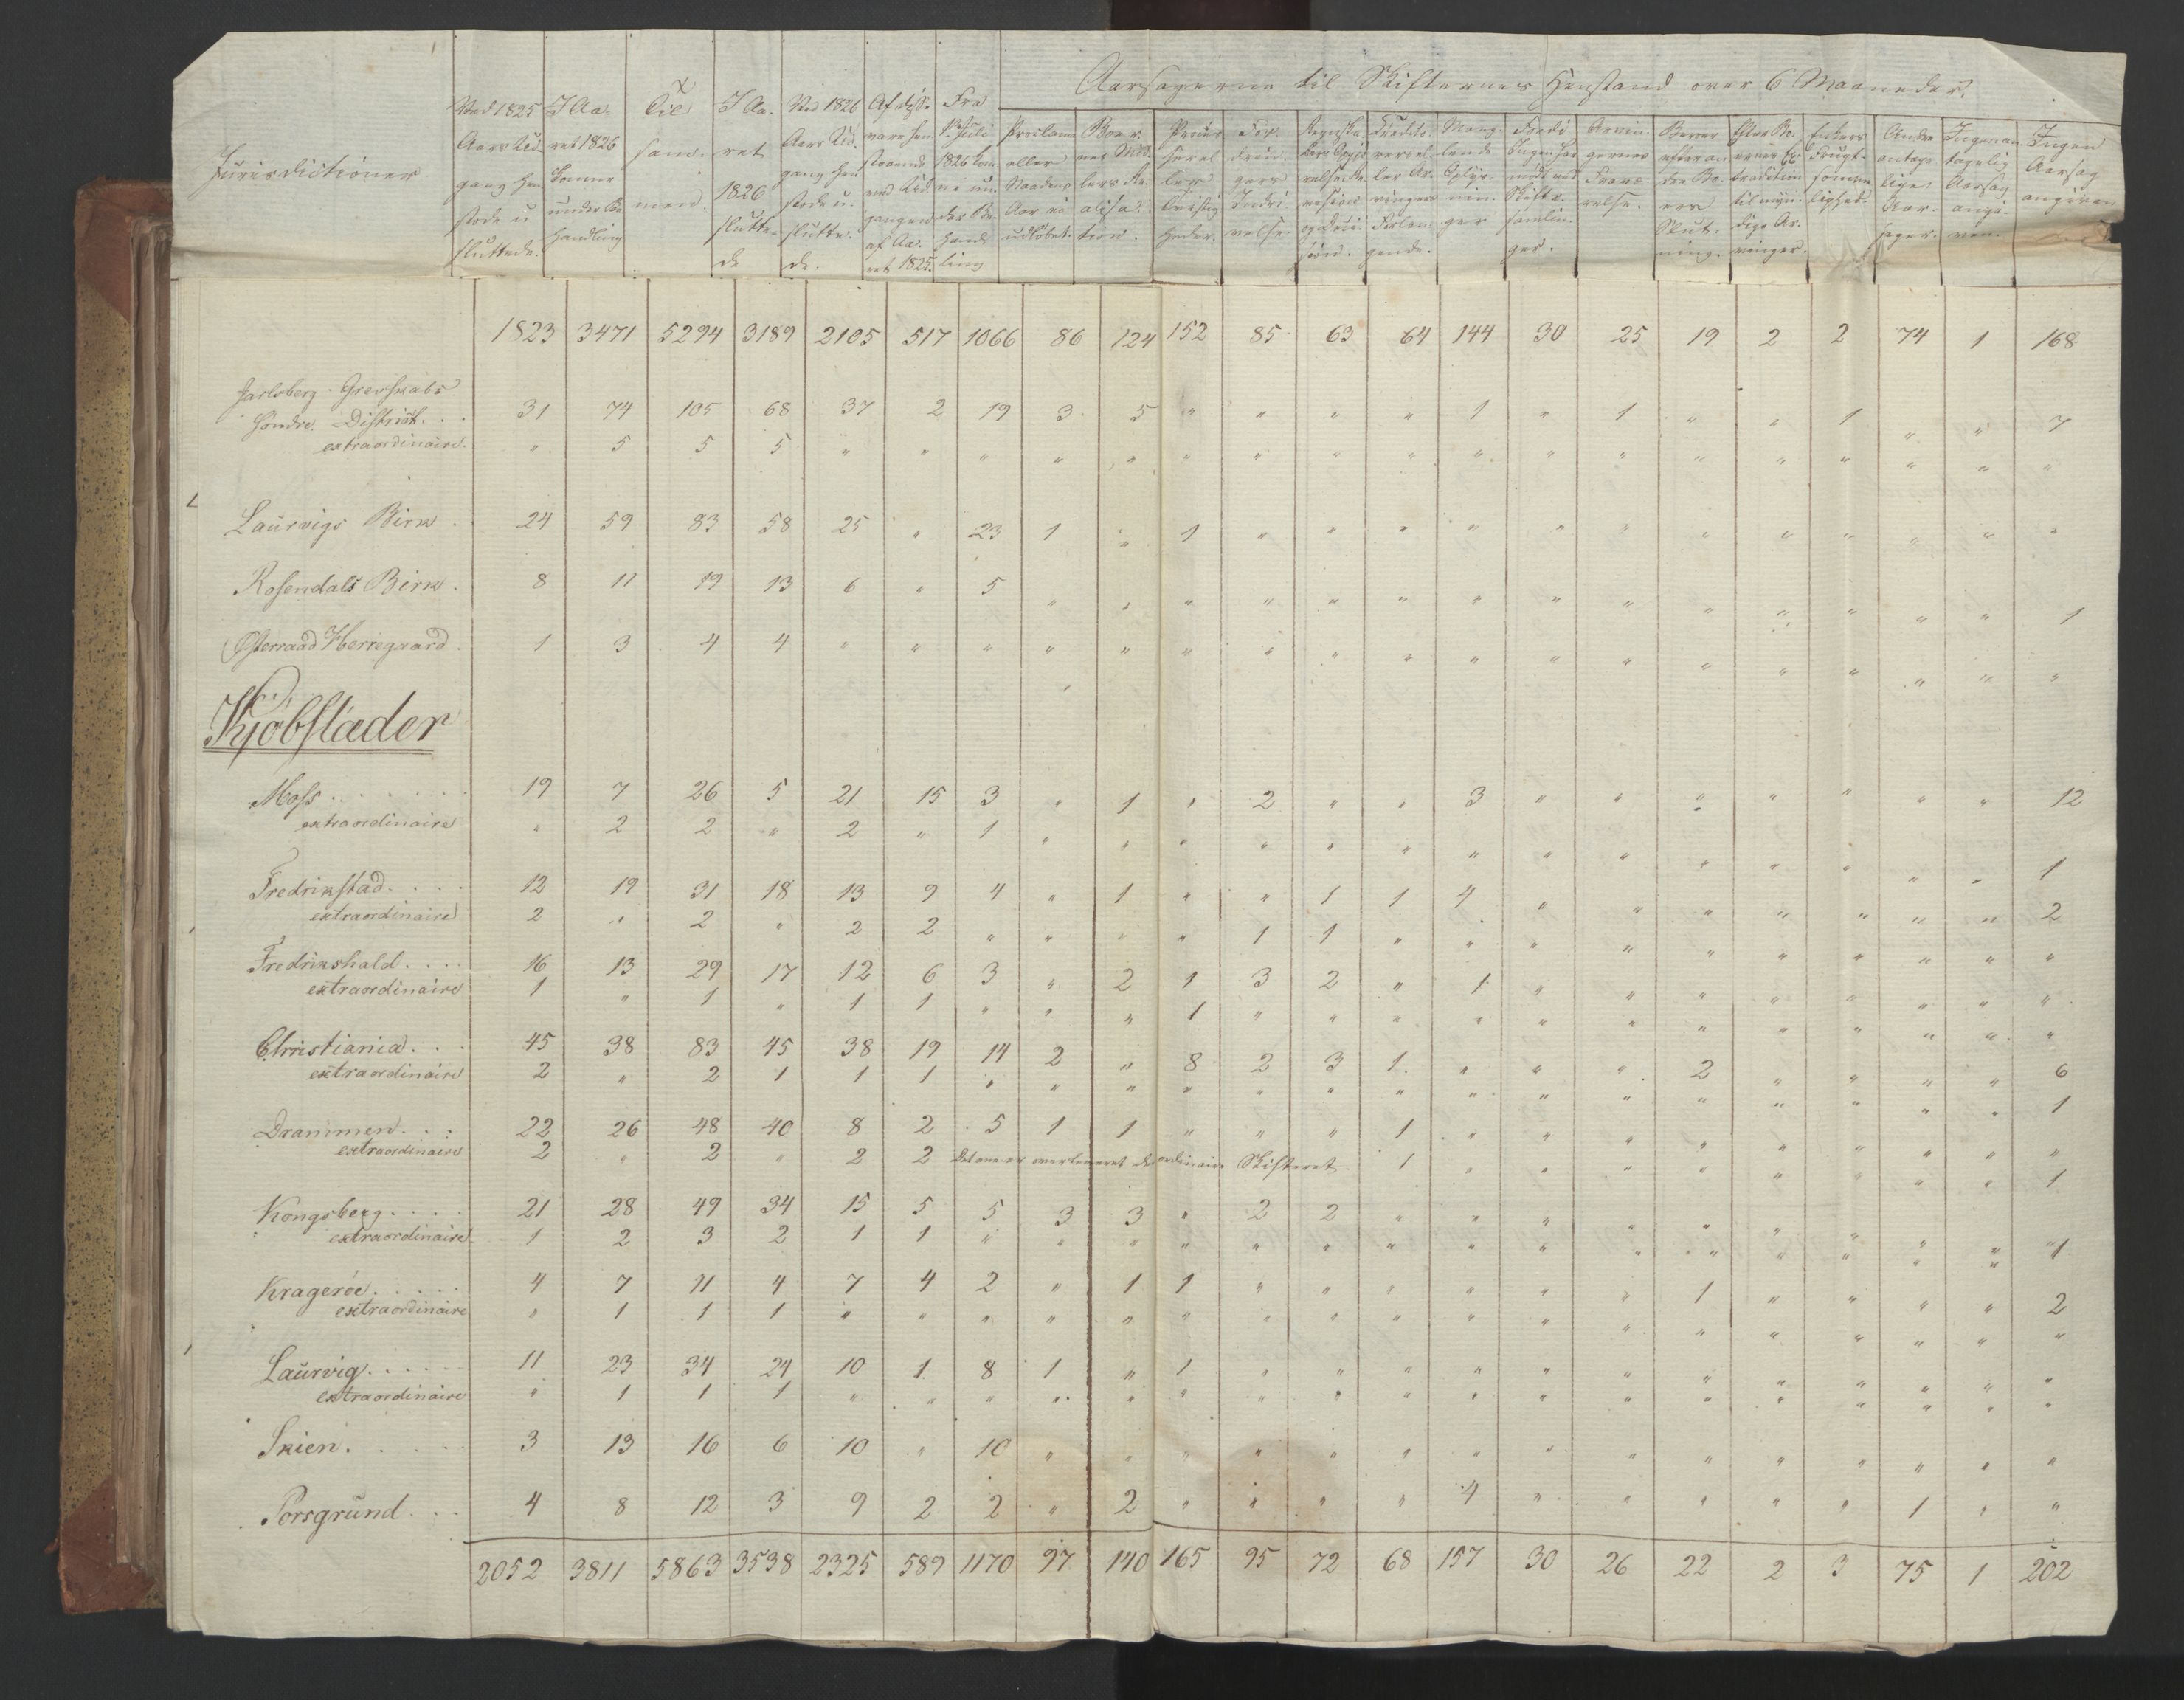 Aarsagerne til Skifternes Henstand over 6 Maaneder.
Jurisdictioner
Ved 1825 Aars Udgang hen stode u sluttede.
I Aaret 1826 komne under Behandling
Tilsammen.
I Aaret 1826 sluttede
Ved 1826 Aars Udgang hen stode u sluttede.
Af disse vare hen staaende ved Udgangen af Aaret 1825.
Fra 1ste Juli 1826 komne under Behandling
Proclama eller Aar ei udløbet.
Boernes Realisation.
Processer eller Tvistigheder.
Fordringers Inddrivelse.
Creditorer eller Arvingers
Manglende Oplysninger
Fordi Ingen har mødt ved Skiftesamlinger.
Arvingernes
Enkers
Andre antagelige Aarsager.
Ingen antagelig Aarsag angiven.
Ingen Aarsag angiven
1823 3471 5294 3189 2105 517 1066 86 124 152 85 63 64 144 30 25 19 2 2 74 1 168
Jarlsberg Grevskabs
Søndre District. . . 31 74 105 68 37 2 19 3 5 " " " " 1 " 1 " " 1 " " 7
extraordinaire. " 5 5 5 " " " " " " " " " " " " " " " " " "
Laurvigs Birk . 24 59 83 58 25 " 23 1 " 1 " " " " " " " " " " " "
Rosendals Birk . 8 11 19 13 6 " 5 " " " " " " " " " " " " " " 1
Østerraad Herregaard. 1 3 4 4 " " " " " " " " " " " " " " " " " "
Kjøbstæder
Moss . . . . . . 19 7 26 5 21 15 3 " 1 " 2 " " 3 " " " " " " " 12
extraordinaire " 2 2 " 2 " 1 " " " " " " " " " " " " " " 1
Fredrikstad. . . . 12 19 31 18 13 9 4 " 1 " " 1 1 4 " " " " " " " 2
extraordinaire 2 " 2 " 2 2 " " " " 1 1 " " " " " " " " " "
Fredrikshald. . . . 16 13 29 17 12 6 3 " 2 1 3 2 " 1 " " " " " " " "
extraordinaire 1 " 1 " 1 1 " " " 1 " " " " " " " " " " " "
Christiania. . . 45 38 83 45 38 19 14 2 " 8 2 3 1 " " " 2 " " " " 6
extraordinaire 2 " 2 1 1 1 " " " " " " " " " " " " " " " 1
Drammen. . . 22 26 48 40 8 2 5 1 1 " " " 1 " " " " " " " " "
extraordinaire 2 " 2 " 2 2 Det ene er overleveret det ordinaire Skifteret 1 " " " " " " " " 1
Kongsberg. . . . 21 28 49 34 15 5 5 3 3 " 2 2 " " " " " " " " " 1
extraordinaire 1 2 3 2 1 1 " " " " " " " " " " " " " " "
Kragerøe. . . . . 4 7 11 4 7 4 2 " 1 1 " " " " " " 1 " " " " 2
extraordinaire " 1 1 1 " " " " " " " " " " " " " " " " " "
Laurvig. . . . . 11 23 34 24 10 1 8 1 " 1 " " " " " " " " " " " "
extraordinaire " 1 1 1 " " " " " " " " " " " " " " " " " "
Skien. . . . . 3 13 16 6 10 " 10 " " " " " " " " " " " " " " "
Porsgrund. . . 4 8 12 3 9 2 2 " 2 " " " " 4 " " " " " 1 " "
2052 3811 5863 3538 2325 589 1170 97 140 165 95 72 68 157 30 26 22 2 3 75 1 202